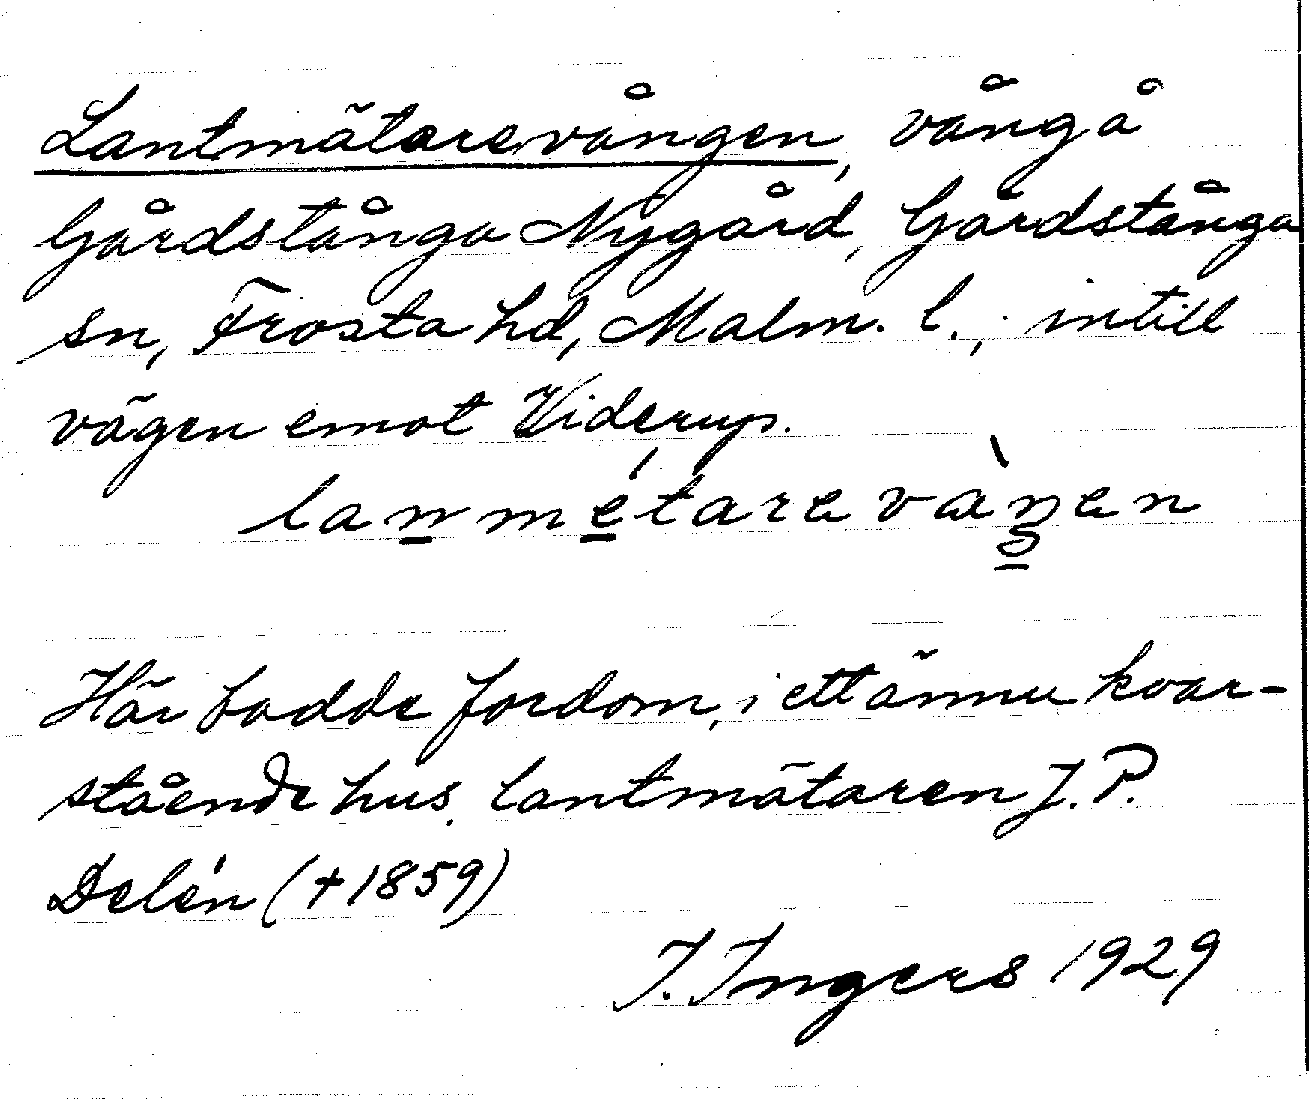 Lantmätarevången, vång å
Gårdstånga Nygård, Gårdstånga
sn, Frosta hd, Malm. l., intill
vägen emot Viderup.
lanmétarevàŋen
Här bodde fordom, i ett ännu kvar-
stående hus, lantmätaren J. P.
Delén (†1859)
I. Ingers 1929